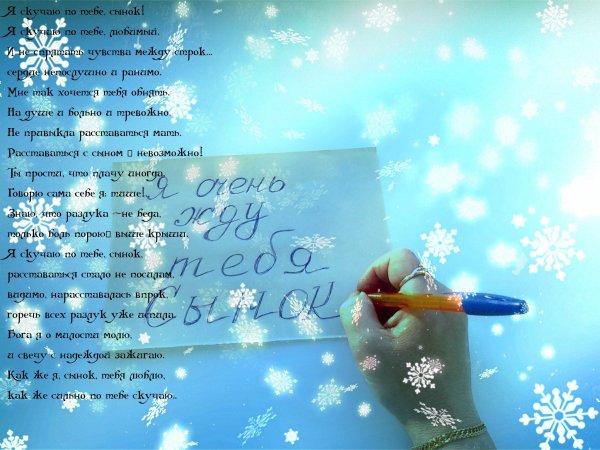 Я скучаю по тебе, сынок!
Я скучаю по тебе, любимый.
И не спрятать чувства между строк...
сердце непослушно и ранимо.
Мне так хочется тебя обнять.
На душе и больно и тревожно.
Не привыкла расставаться мать.
Расставаться с сыном невозможно!
Ты прости, что плачу иногда,
Говорю сама себе я: тише!
Знаю, что разлука -не беда,
только боль порою выше крыши.
Я скучаю по тебе, сынок,
расставаться стало не посилам,
видимо, нарасставалась впрок,
горечь всех разлук уже испила.
Бога я о милости молю,
и свечу с надеждой зажигаю.
Как же я, сынок, тебя люблю,
как же сильно по тебе скучаю..
Я очень
жду
тебя
Сынок